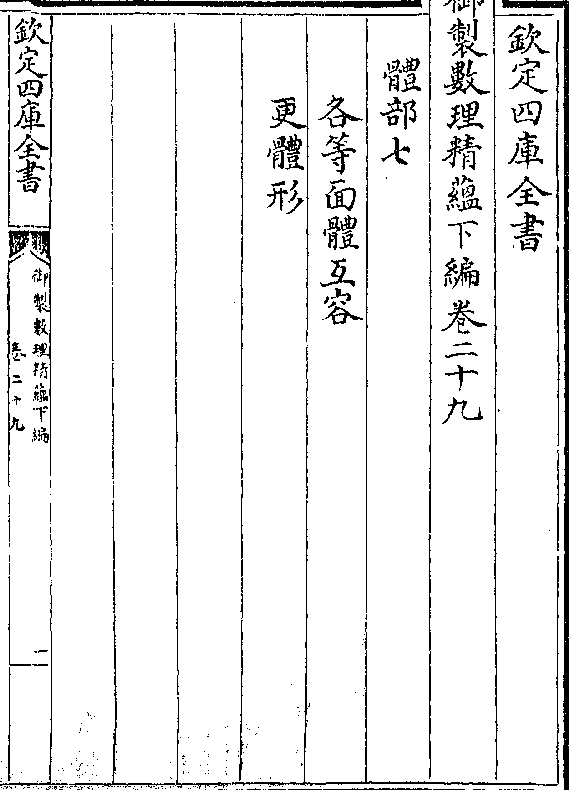 欽定四庫全書
御製數理精蘊下編卷二十九
體部七
各等面體互容
更體形
欽定四庫全書
御製數理精蘊下編
卷二十九
一